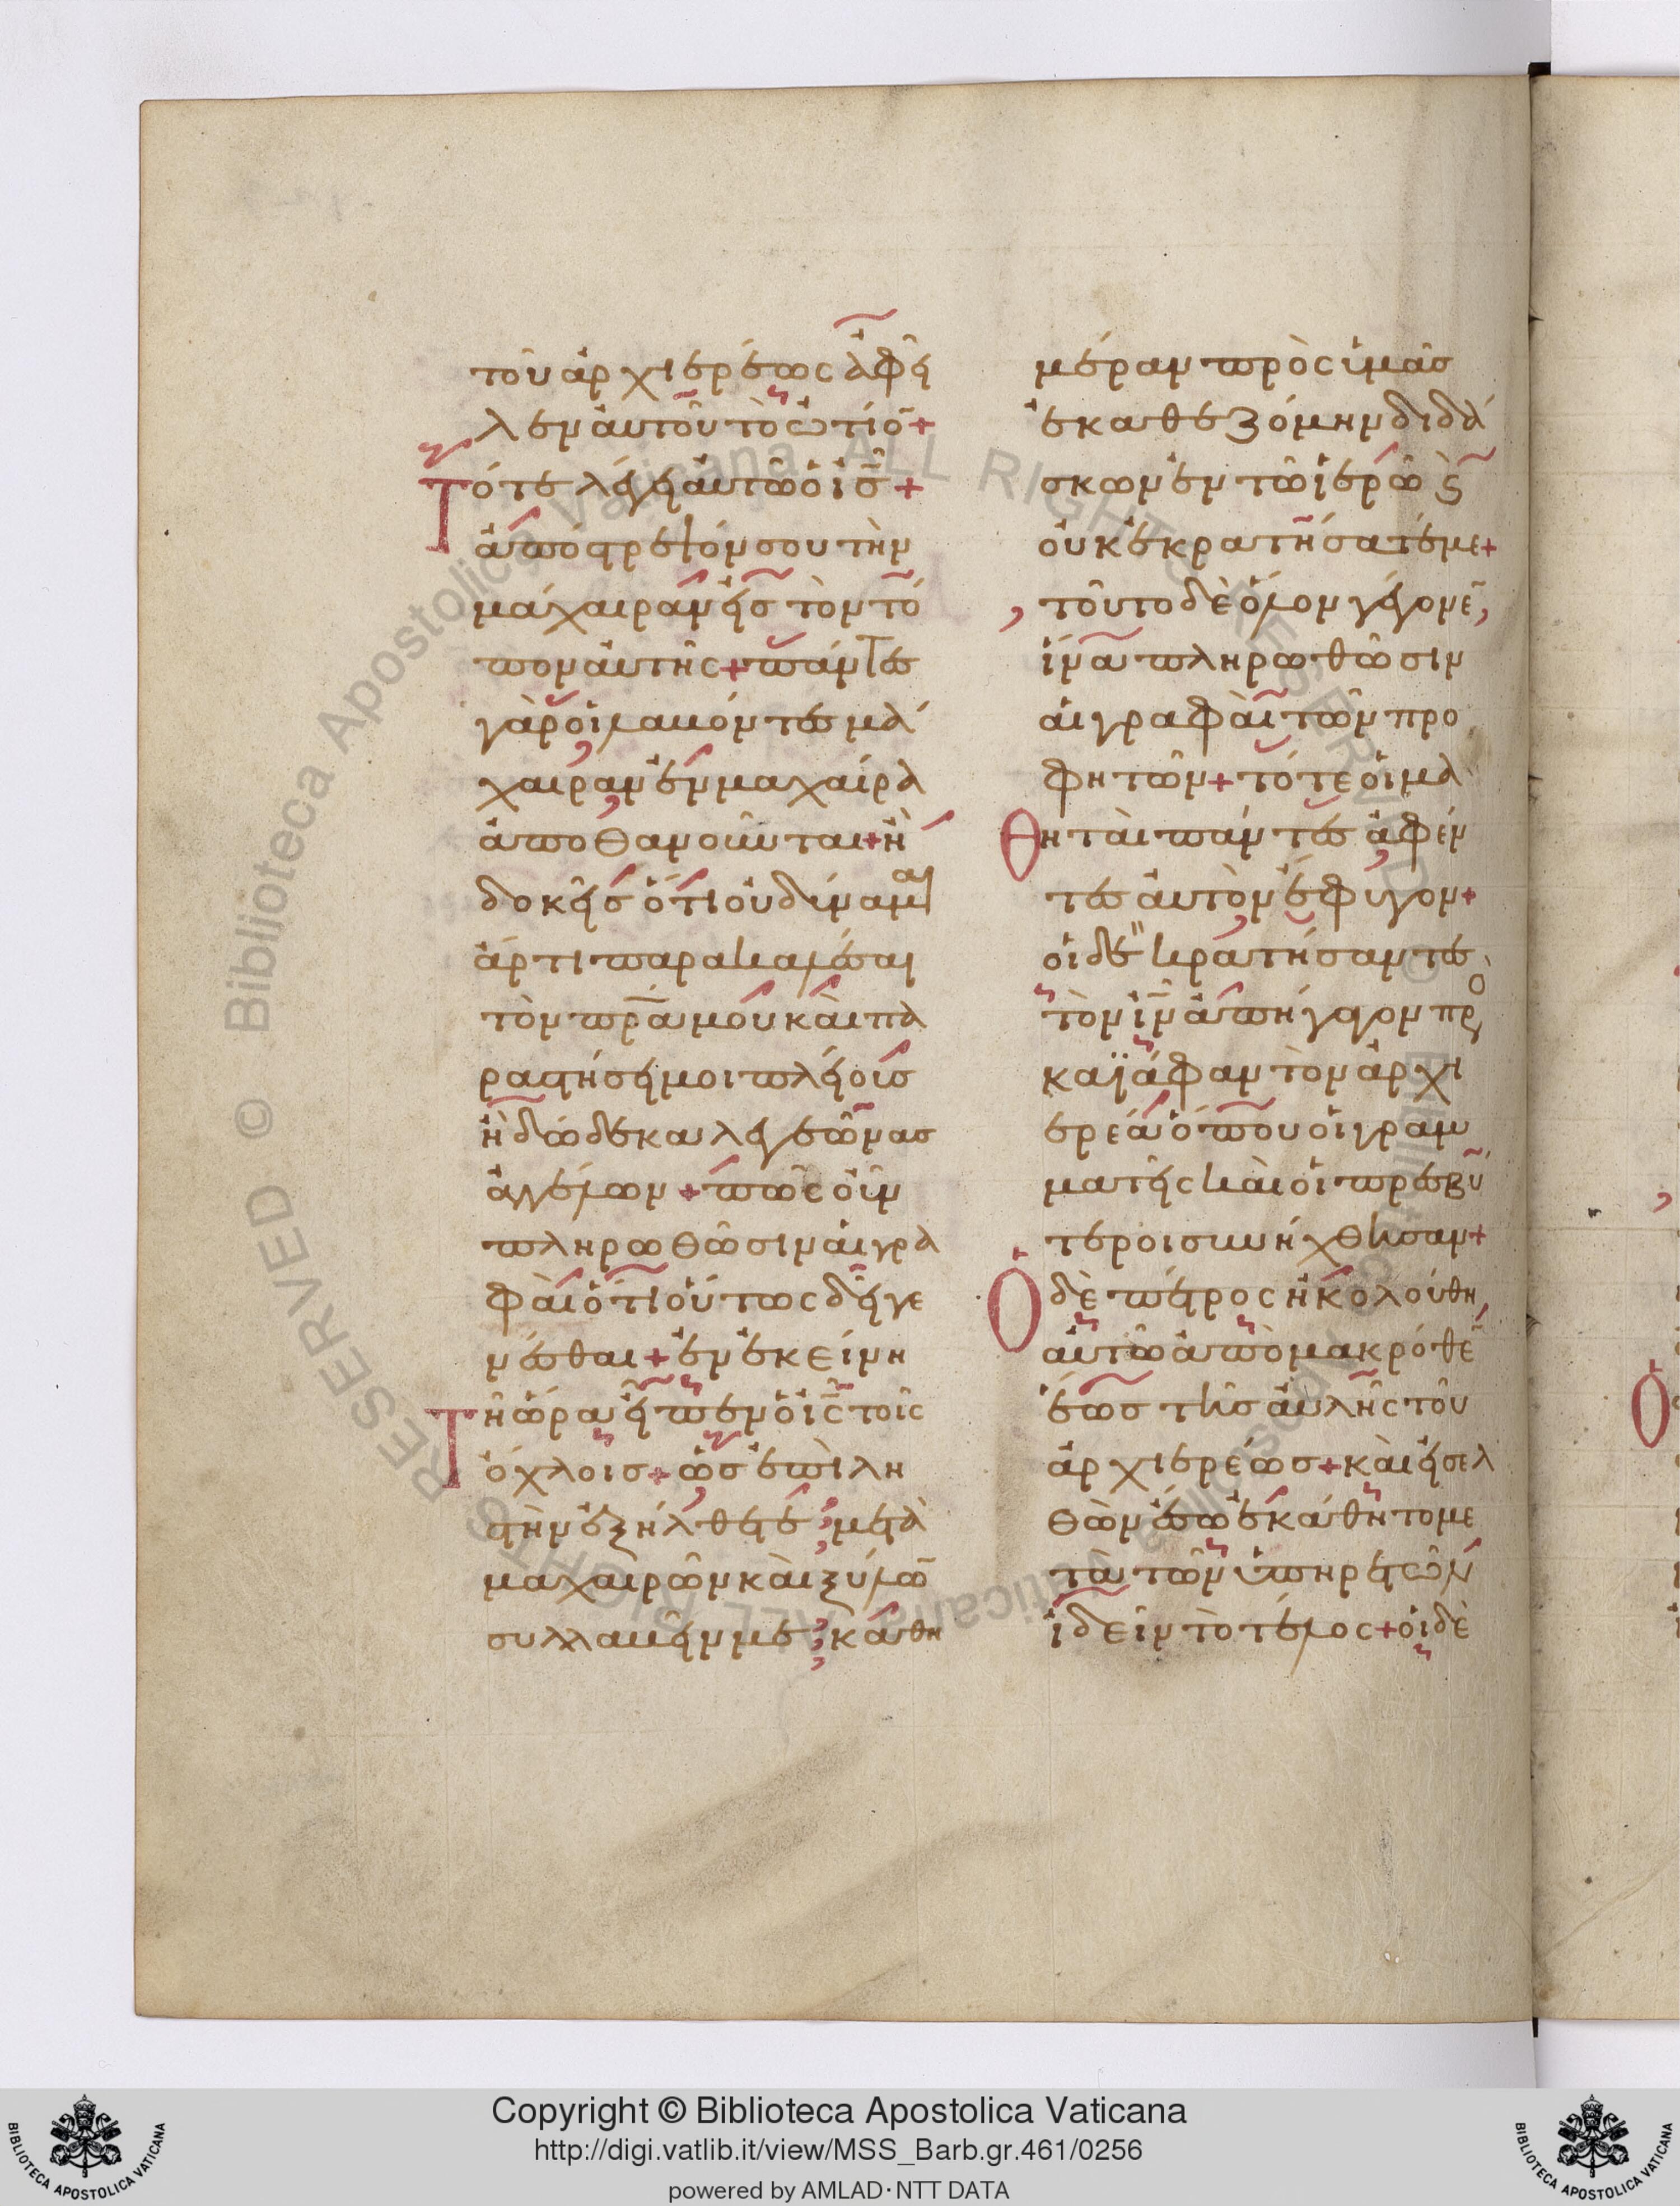 τοῦ ἀρχιερέως ἀφεῖ
λεν αὐτοῦ τὸ ὠτίο̅+
Τότε λέγει αὐτῶ ὁ ι̅σ̅+
ἀπόστρεψόν σου τὴν
μάχαιραν εἰσ τὸν τό
πον αὐτῆς+πάντες
γὰρ οἱ λαβόντες μά
χαιραν ἐν μαχαίρα
ἀποθανοῦνται+ἢ
δοκεῖσ ὅτι οὐ δύναμαι
ἄρτι παρακαλέσαι
τὸν πρ̅α μου καὶ πα
ραστήσει μοι πλείουσ
ἢ δώδεκα λεγεῶνασ
ἀγγέλων+πῶς οὖν
πληρωθῶσιν αἱ γρα
φαὶ ὅτι οὕτως δεῖ γε
νέσθαι+ἐν ἐκείνη
Τῆ ὥρα εἶπεν ὁ ι̅ς̅ τοῖς
ὄχλοισ+ὡσ ἐπὶ λη
στὴν ἐξήλθετε μετὰ
μαχαιρῶν καὶ ξύλω̅
συλλαβεῖν με καθη
μέραν πρὸς ὑμᾶσ
ἐκαθεζόμην διδά
σκων ἐν τῶ ἱερῶ ϛ̀
οὐκ ἐκρατήσατέ με+
τοῦτο δὲ ὅλον γέγονε̅,
ἵνα πληρωθῶσιν
αἱ γραφαὶ τῶν προ
φητῶν+τότε οἱ μα
Θηταὶ πάντες ἀφέν
τες αὐτὸν ἔφυγον+
οἱ δὲ κρατήσαντες
τὸν ι̅ν̅ ἀπήγαγον πρ
καϊάφαν τὸν ἀρχι
ερέα ὅπου οἱ γραμ
ματεῖς καὶ οἱ πρεσβύ
τεροι συνήχθησαν+
Ὁ δὲ πέτρος ἠκολούθη
αὐτῶ ἀπὸ μακρόθε̅
ἕωσ τῆσ αὐλῆς τοῦ
ἀρχιερέωσ+καὶ εἰσελ
θὼν ἔσω ἐκάθητο με
τὰ τῶν ὑπηρετῶν
ἰδεῖν τὸ τέλος+οἱ δὲ
Copyright © Biblioteca Apostolica Vaticana
http://digi.vatlib.it/view/MSS_Barb.gr.461/0256
powered by AMLAD·NTT DATA